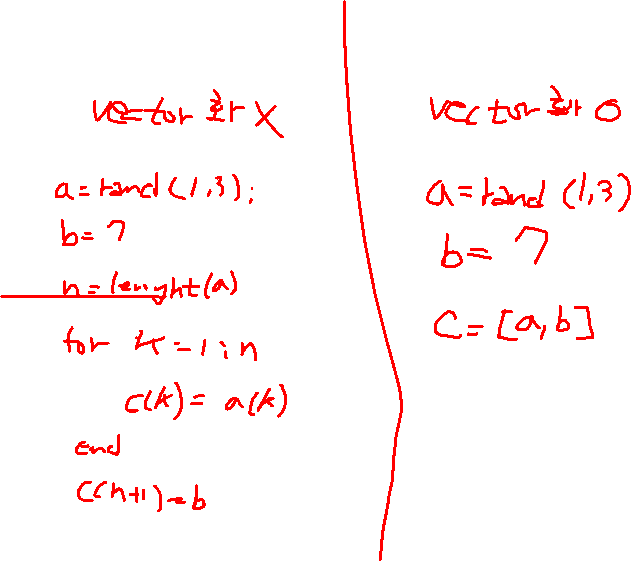 vector화 X
a=rand(1,3);
b=7
n=lenght(a)
for k=1:n
c(k)=a(k)
end
c(n+1)=b
vector화 O
a=rand(1,3)
b=7
C=[a,b]